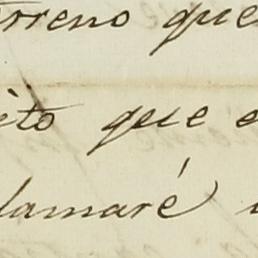 rreno que
ito que e
lamaré